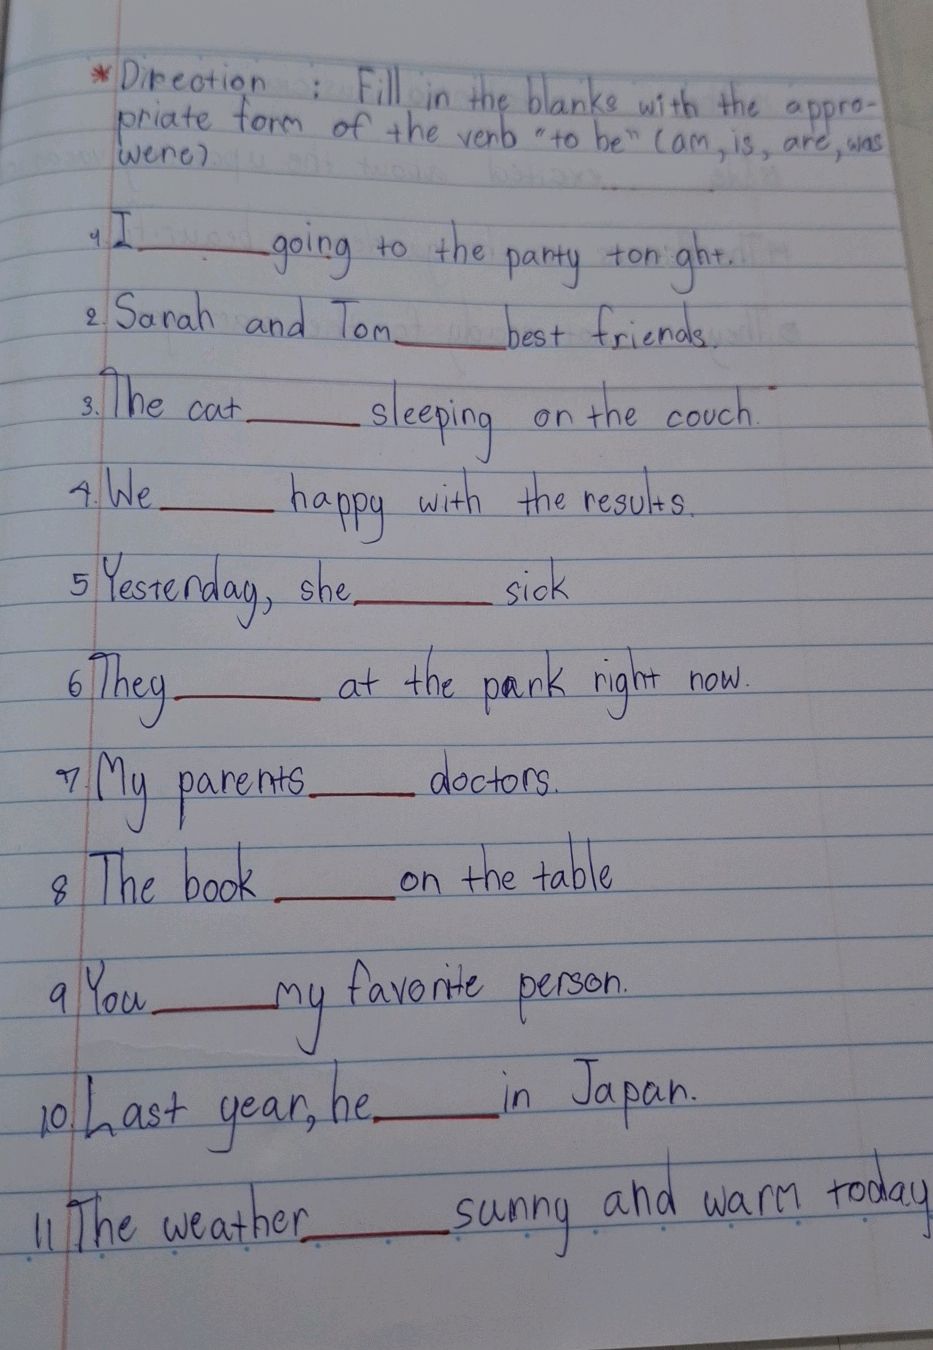 * Direction : Fill in the blanks with the appro-
priate form of the verb "to be" (am, is, are, was
were)
1 I ______ going to the party ton ght.
2. Sarah and Tom ______ best friends.
3. The cat ______ sleeping on the couch.
4. We ______ happy with the results.
5 Yesterday, she ______ sick
6 They ______ at the park right now.
7. My parents ______ doctors.
8 The book ______ on the table
9 You ______ my favorite person.
10. Last year, he ______ in Japan.
11 The weather ______ sunny and warm today